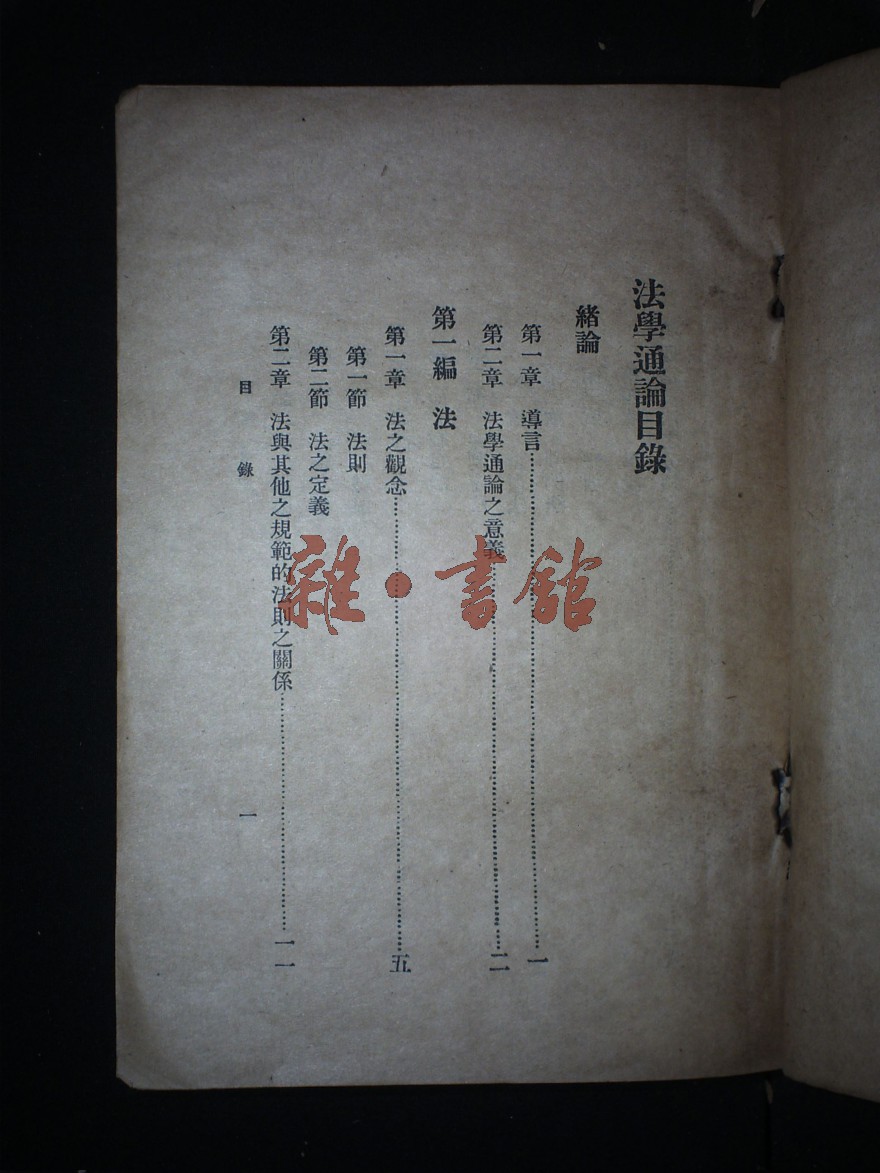 法學通論目錄
緒論
第一章　導言……一
第二章　法學通論之意義……二
第一編　法
第一章　法之觀念……五
第一節　法則
第二節　法之定義
第二章　法與其他之規範的法則之關係……一一
目　錄　一
雜・書館